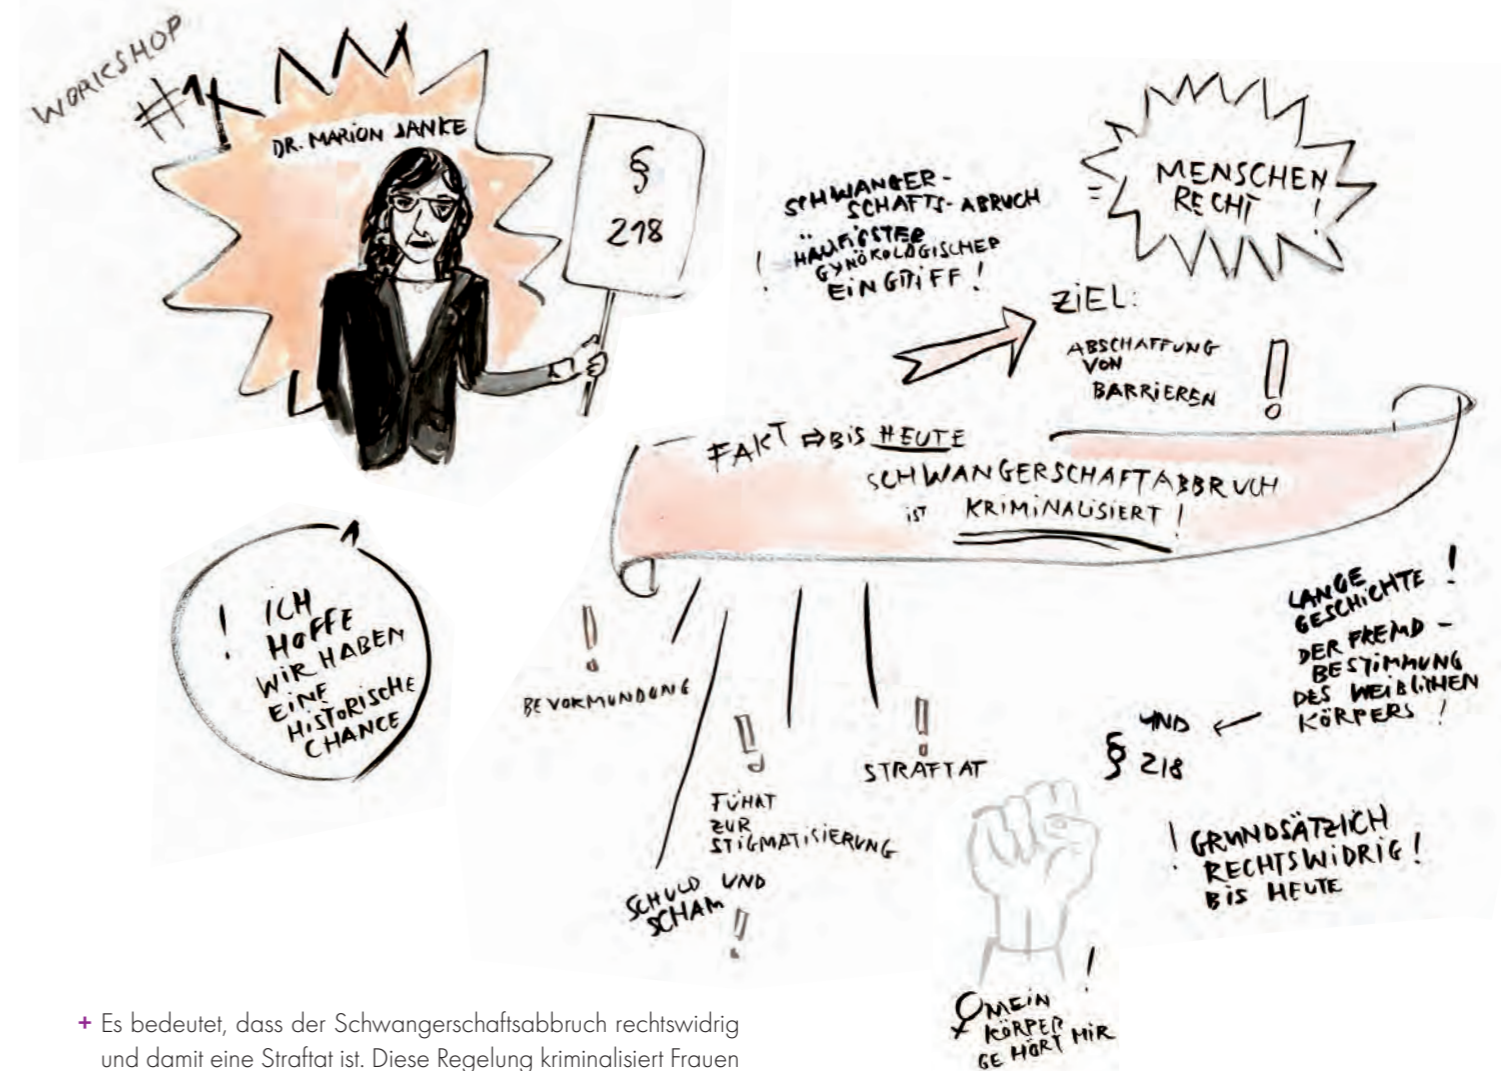 WORKSHOP
#1
DR. MARION JANKE
§
218
SCHWANGER-
SCHAFTS-ABRUCH
! HÄUFIGSTER
GYNÖKOLOGISCHER
EINGRIFF!
MENSCHEN
RECHT !
ZIEL:
ABSCHAFFUNG
VON
BARRIEREN !
FAKT ⇨ BIS HEUTE
SCHWANGERSCHAFTABBRUCH
IST KRIMINALISIERT!
! ICH
HOFFE
WIR HABEN
EINE
HISTORISCHE
CHANCE
!
BEVORMUNDUNG
!
FÜHRT
ZUR
STIGMATISIERUNG
SCHULD UND
SCHAM !
!
STRAFTAT
LANGE
GESCHICHTE !
DER FREMD-
BESTIMMUNG
DES WEIBLICHEN
KÖRPERS !
UND ←
§ 218
! GRUNDSÄTZLICH
RECHTSWIDRIG!
BIS HEUTE
♀ MEIN !
KÖRPER
GEHÖRT MIR
+ Es bedeutet, dass der Schwangerschaftsabbruch rechtswidrig
und damit eine Straftat ist. Diese Regelung kriminalisiert Frauen